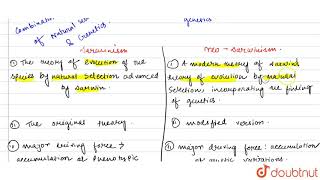 Combination genetics
of Natural sel
& Genetics.
Darwinism Neo-Darwinism.
i) The theory of evolution of the
species by natural selection advanced
by Darwin.
i) A modern theory of Darwin's
theory of evolution by natural
selection, incorporating the finding
of genetics.
ii) The original theory.
ii) modified version.
iii) major driving force →
accumulation of Phenotypic
iii) major driving force: accumulation
of genetic variations.
doubtnut